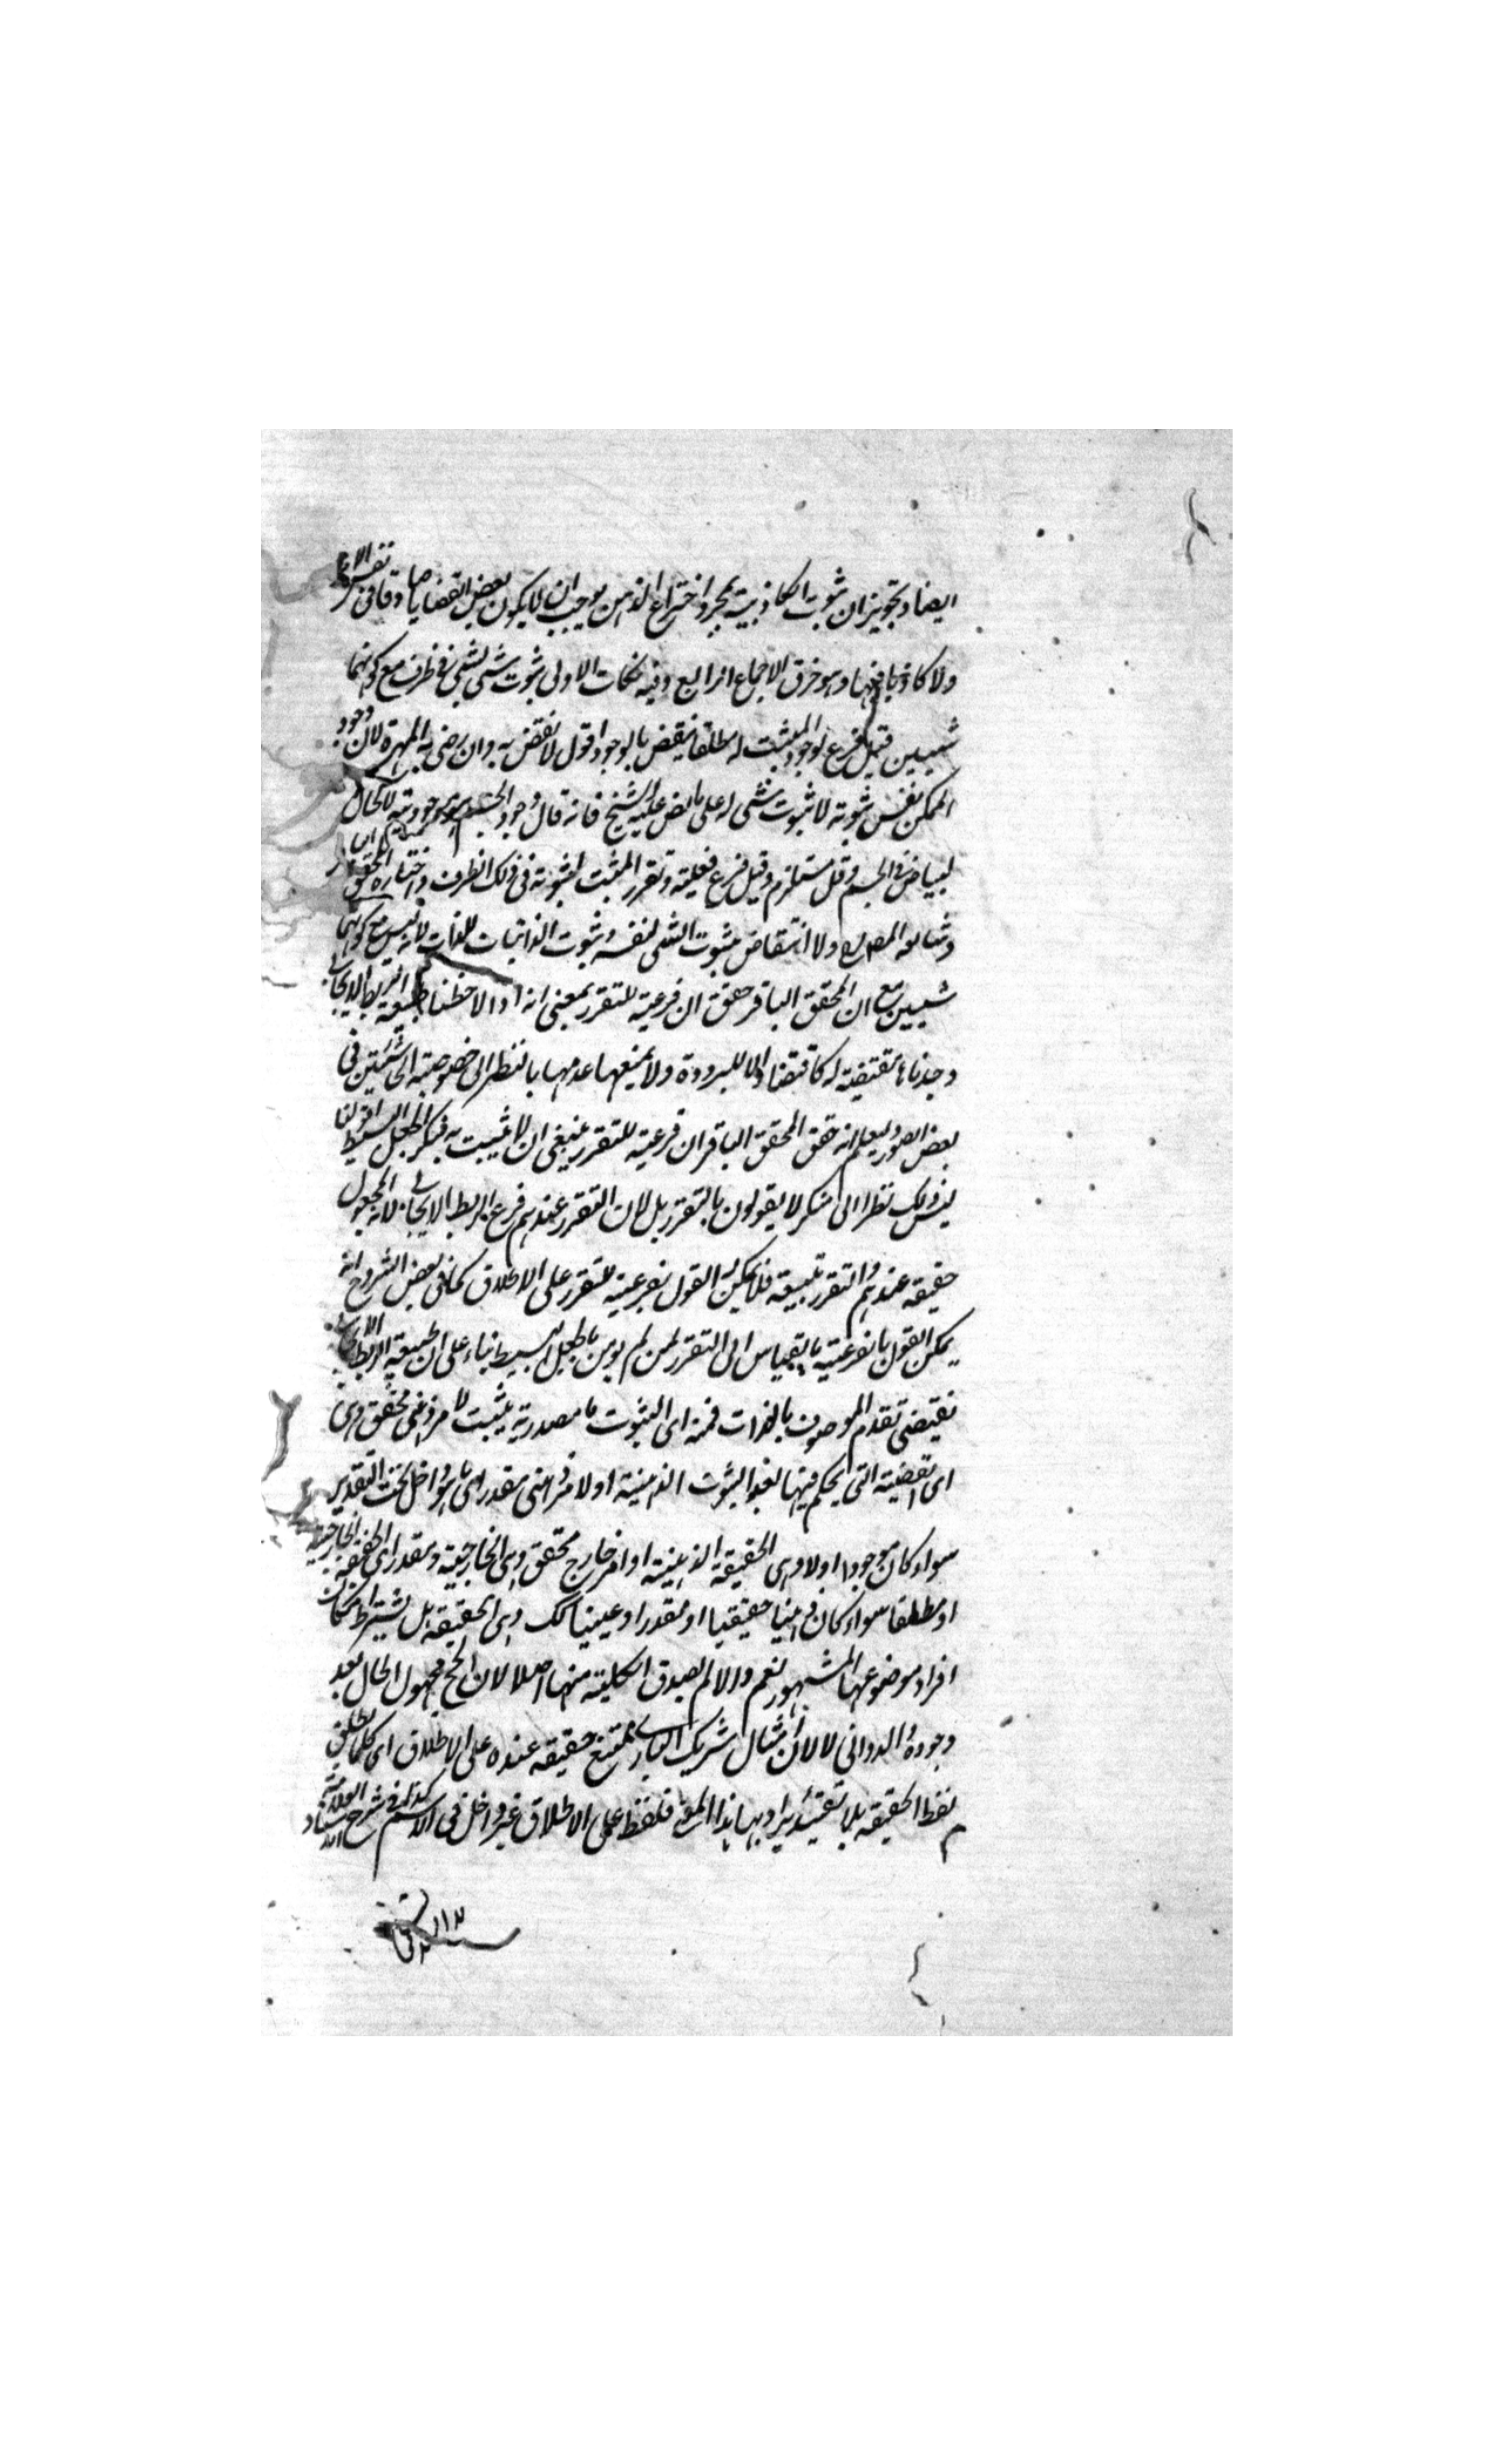 ايضا وتجويز ان ثبوت الكاذبية بمجرد اختراع الذهن يوجب ان لا يكون بعض القضايا صادقا في نفس الامر
ولا كاذبا فيها وهو خرق الاجماع انزالهع وفيه نكات الاولى ثبوت شئ لشئ في ظرف مع كونهما
شيئين قيل فرع لوجود المثبت له مطلقا فينقض بالوجود اقول لا نقض به وان رضى به المهرة لان وجود
الممكن نفس ثبوته لا ثبوت شئ له على ما نص عليه الشيخ فانه قال وجود الجسم هو موجوديته لا كحال
البياض في الجسم وقيل مستلزم وقيل فرع فعليته وتقرر المثبت له ثبوته في ذلك الظرف واختاره المحقق
ولا انتقاض بثبوت الشئ لنفسه وثبوت الذاتيات للذات لانه ليس مع كونهما
شيئين مع ان المحقق الباقر حقق ان فرعيته للتقرر بمعنى انه اذا لاحظنا طبيعة الربط الايجابي
وجدناها مقتضية له كاقتضاء الماء للبرودة ولا يمنعها عدمها بالنظر الى خصوصية الحاشيتين في
بعض الصور وليعلم انه حقق المحقق الباقر ان فرعيته للتقرر ينبغي ان لا يثبت به منكر الجعل البسيط اقول لنا
ليس ذلك نظرا الى منكر لا يقولون بالتقرر بل لان التقرر عندهم فرع الربط الايجابي لانه المجعول
حقيقة عندهم والتقرر تبعيته فلا يمكن له القول بفرعيته للتقرر على الاطلاق كما في بعض الشروح انه
يمكن القول بالفرعية بالقياس الى التقرر لمن لم يؤمن بالجعل البسيط بناء على ان طبيعة الربط الايجابي
تقتضي تقدم الموصوف بالذات فمنه اى الثبوت ما مصدرية يثبت لامر ذهني محقق وهى
اى القضية التي يحكم فيها لهذا الثبوت الذهنية او لامر ذهني مقدر اى ما هو داخل تحت التقدير
سواء كان موجودا اولا وهى الحقيقة الذهنية او امر خارج محقق وهى الخارجية ومقدر اى الحقيقة الخارجية
او مطلقا سواء كان ذهنيا حقيقيا او مقدرا او عينيا كك وهى الحقيقة بل يشترط امكان
افراد موضوعها المشهور نعم والا لم يصدق الكلية منها اصلا لان الحج مجهول الحال بعد
وجوده والدواني لا لان امثال شريك الباري ممتنع حقيقة عنده على الاطلاق اى كلما يطلق
لفظ الحقيقة بلا تقييد يراد بها هذا المعنى فلفظ على الاطلاق غير داخل في الاسم كذا في شرح العلامة